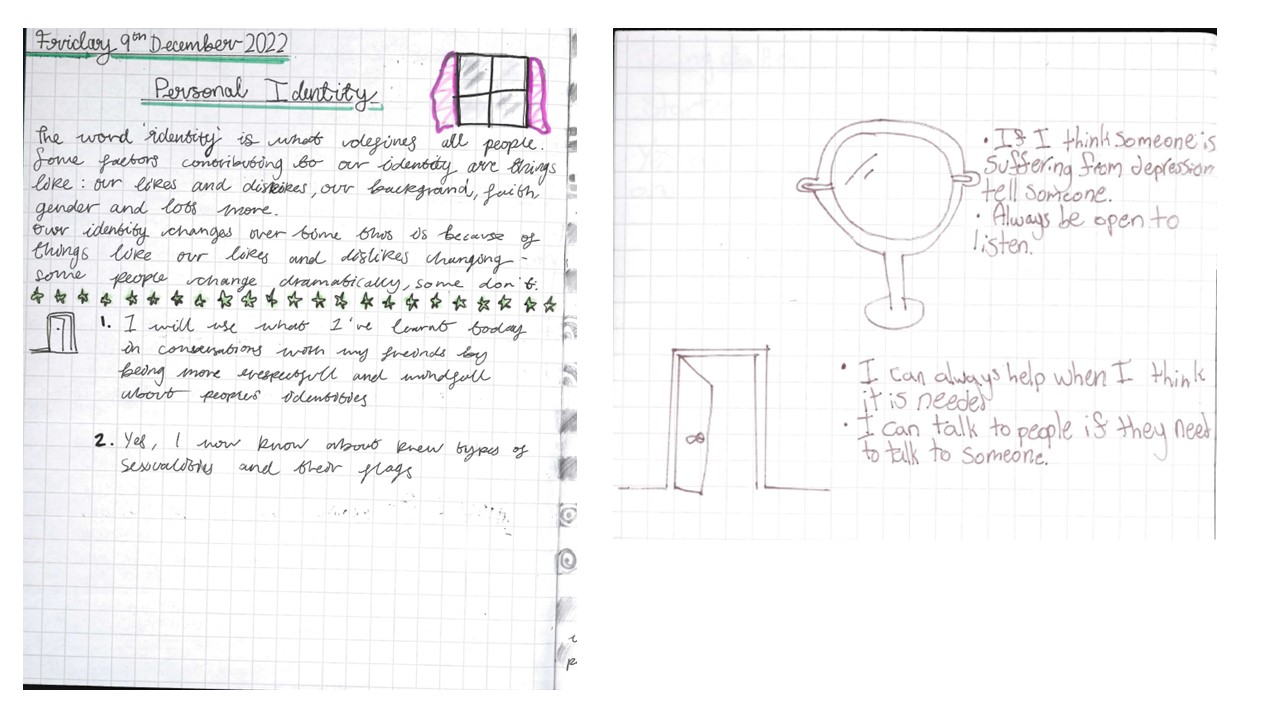 Friday 9th December 2022
Personal Identity
The word 'identity' is what defines all people.
Some factors contributing to our identity are things
like : our likes and dislikes, our background, faith,
gender and lots more.
our identity changes over time this is because of
things like our likes and dislikes changing -
some people change dramatically, some don't.
1. I will use what I've learnt today
in conversations with my freinds by
being more respectfull and mindfull
about peoples identities
2. Yes, I now know about knew types of
sexualities and their flags
• If I think someone is
suffering from depression
tell someone.
• Always be open to
listen.
• I can always help when I think
it is needed
• I can talk to people if they need
to talk to someone.